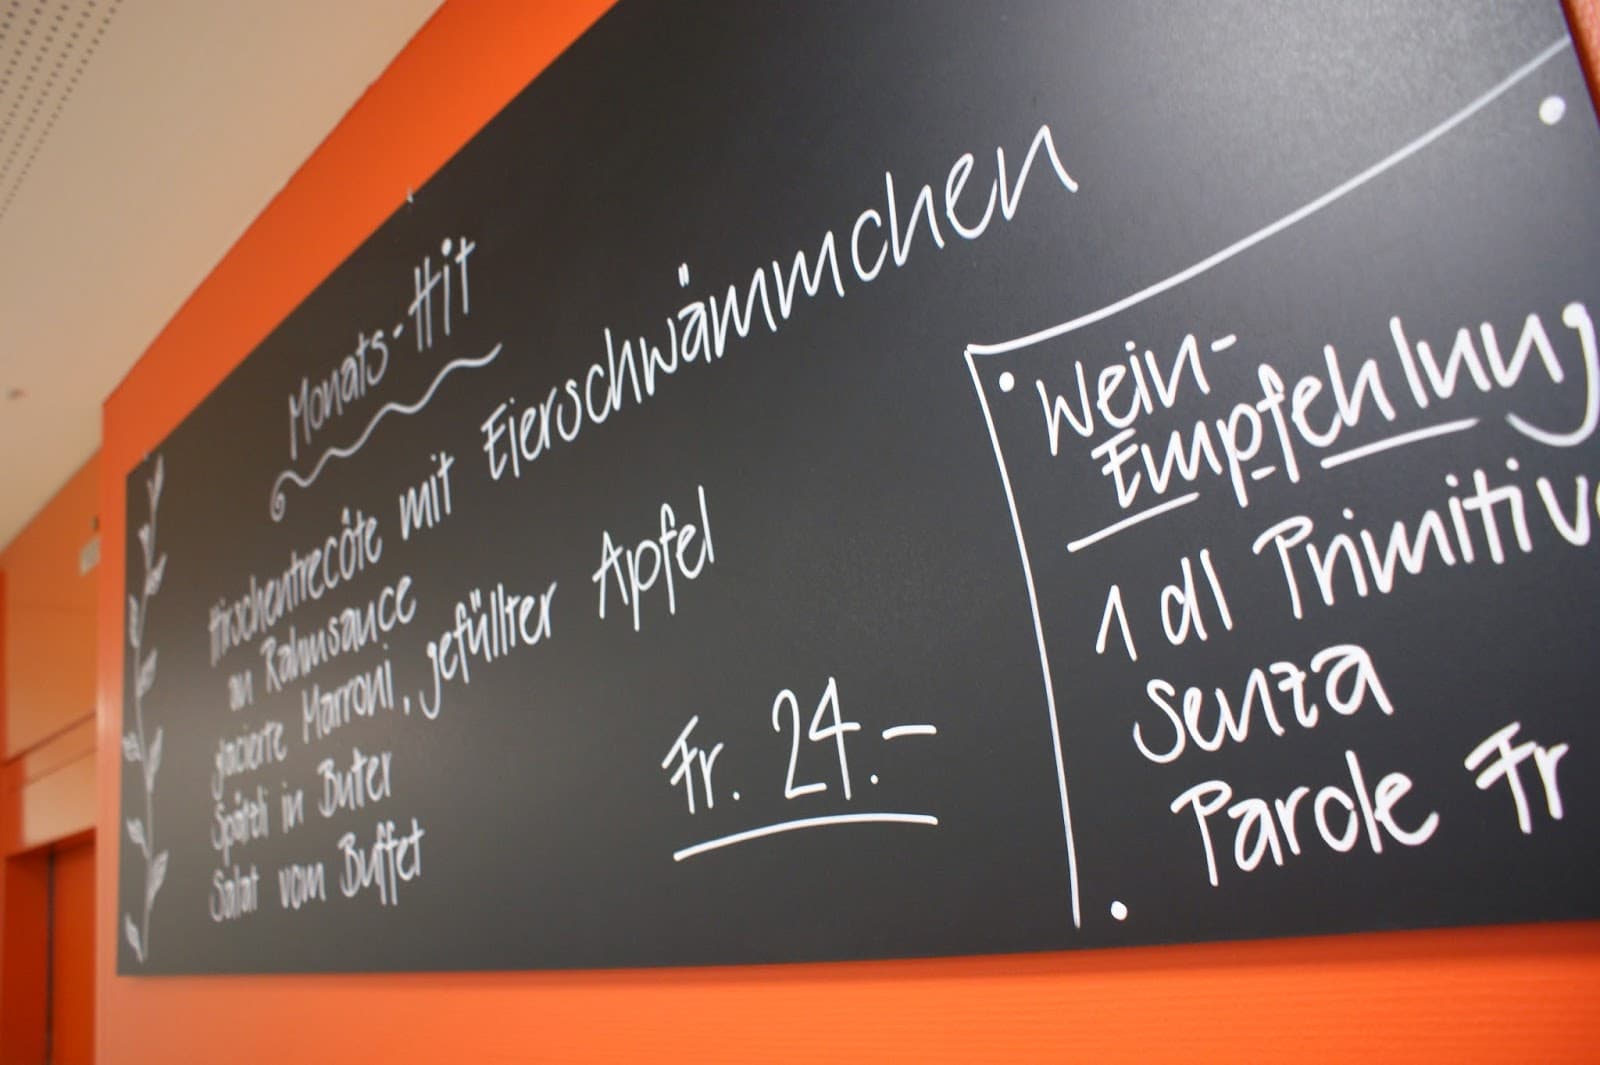 Monats-Hit
Hirschentrecôte mit Eierschwämmchen
an Rahmsauce
glacierte Marroni, gefüllter Apfel
Spätzli in Butter
Salat vom Buffet
Fr. 24.-
Wein-
Empfehlung
1 dl Primitivo
Senza
Parole Fr